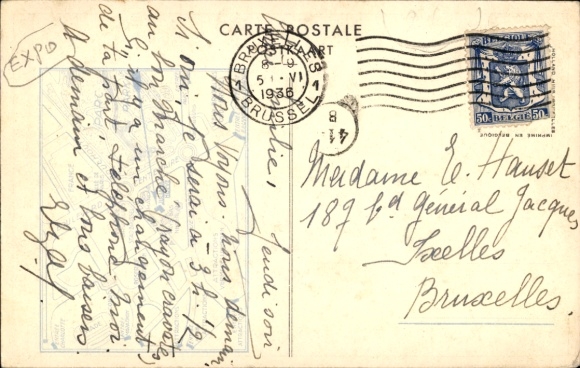 EXPO
CARTE POSTALE
POSTKAART
BRUXELLES
8-9
5 VI
1936
BRUSSEL
BELGIE
50c 50c
Jeudi soir
Nous voyons-nous demain
Si oui, je serai à 3 h. 1/2
au bon Marché (rayon cravates)
S'il y a un changement,
de ta part, téléphone-moi.
A demain et bons baisers.
Madame E. Hanset
187 bd Général Jacques
Ixelles
Bruxelles.